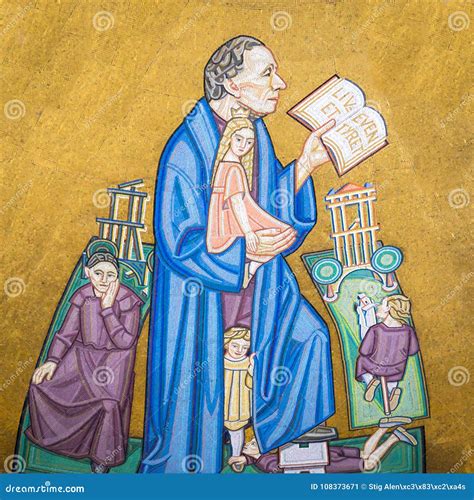 LIV
ET
EVEN
TYRET
dreamstime.com
ID 108373671 © Stig Alen\xc3\x83\xc2\xa4s